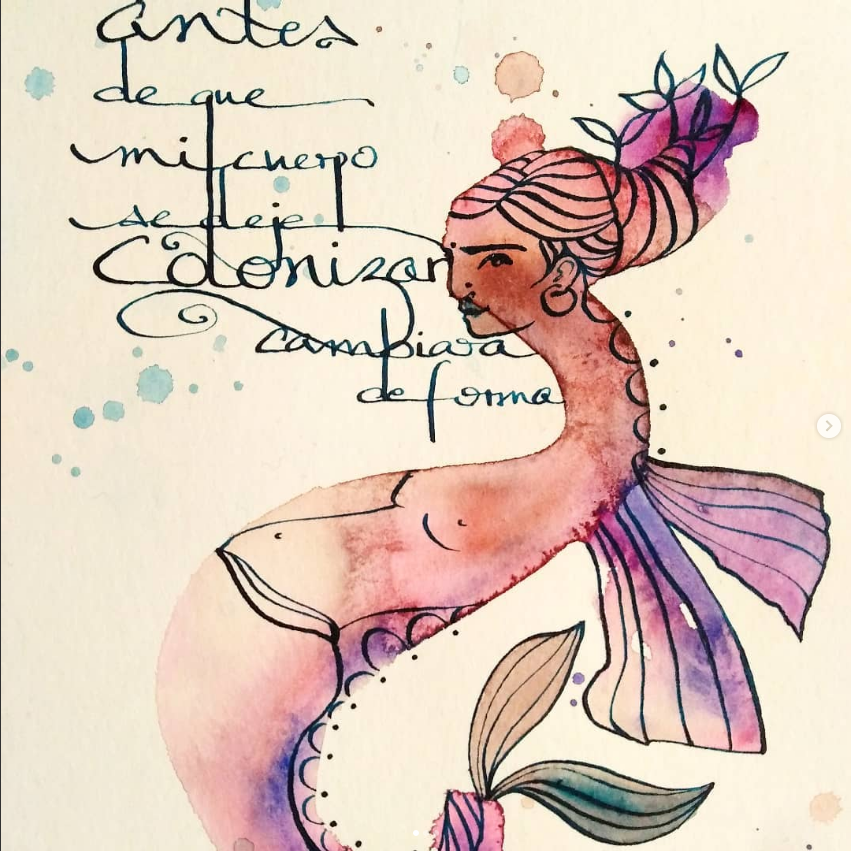 antes
de que
mi cuerpo
se deje
Colonizar
cambiara
de forma